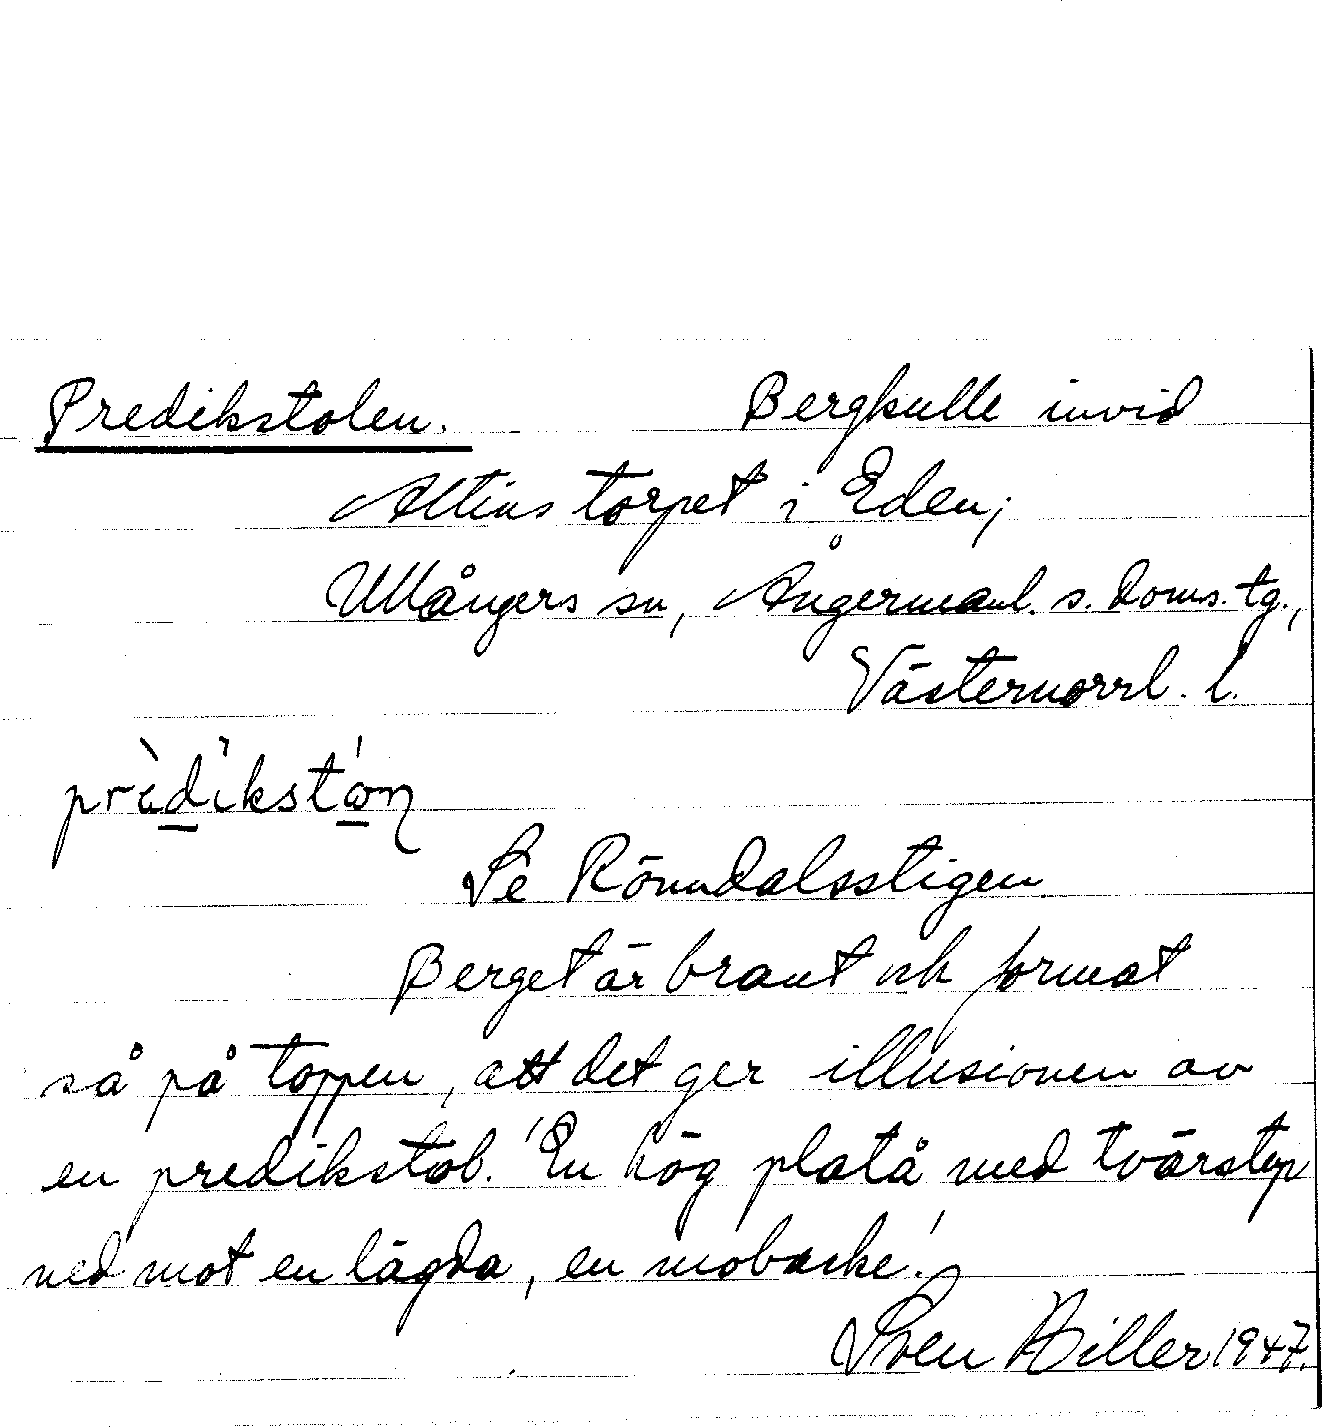 Predikstolen. Bergkulle invid
Altins torpet i Eden;
Ullångers sn, Ångermanl. s. doms. tg.,
Västernorrl. l.
Se Rönndalsstigen
Berget är brant och format
så på toppen, att det ger illusionen av
en predikstol. 'En hög platå med tvärstup
ned mot en lägda, en mobacke'.
Sven Hiller 1947.